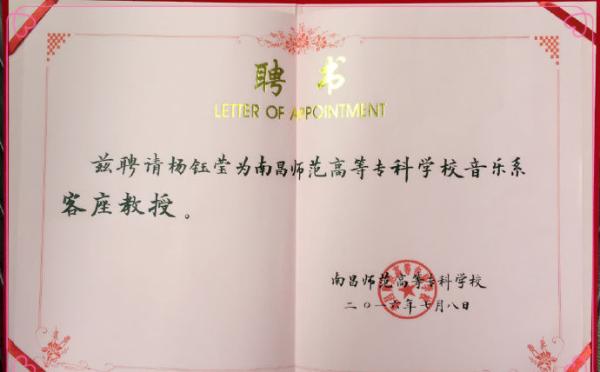 聘书
LETTER OF APPOINTMENT
兹聘请杨钰莹为南昌师范高等专科学校音乐系
客座教授。
南昌师范高等专科学校
二〇一六年七月八日